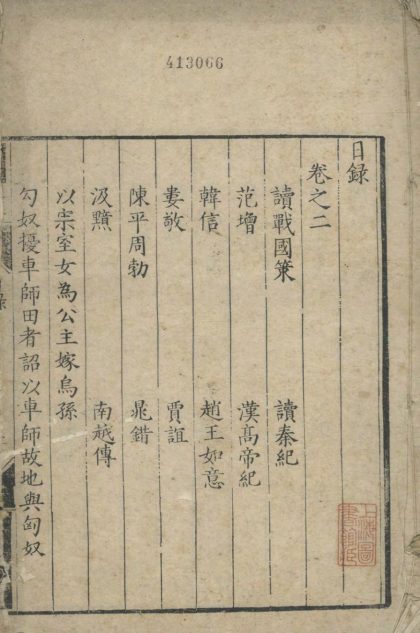 413066
目録
卷之二
讀戰國策 讀秦紀
范增 漢髙帝紀
韓信 趙王如意
婁敬 賈誼
陳平周勃 晁錯
汲黯 南越傳
以宗室女為公主嫁烏孫
匈奴擾車師田者詔以車師故地與匈奴
上海圖書館藏